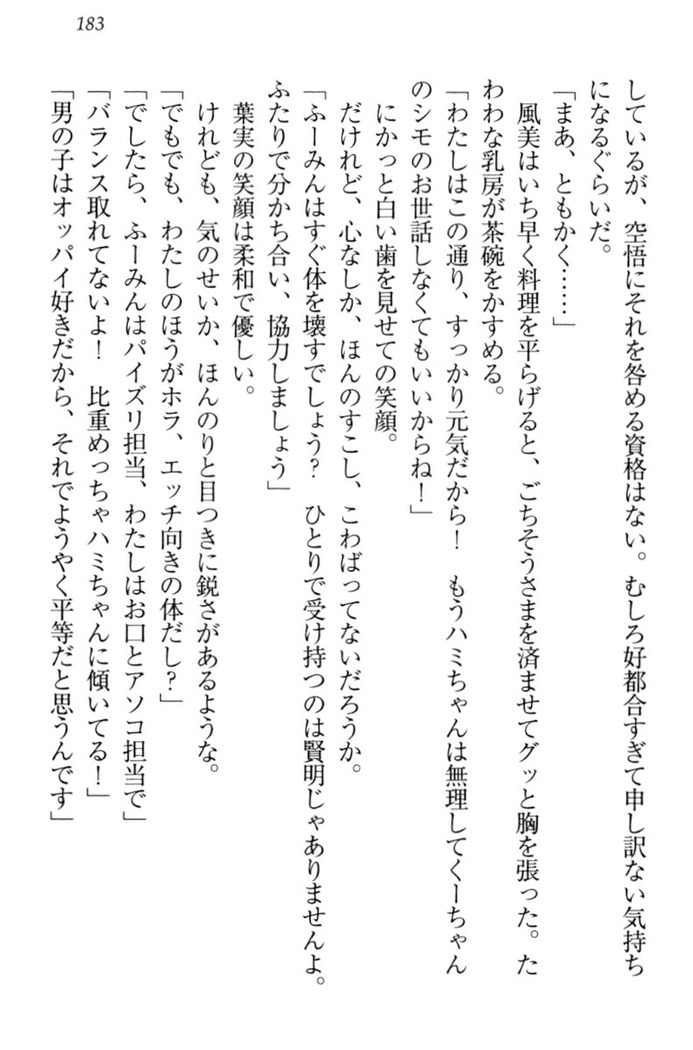 183
しているが、空悟にそれを咎める資格はない。むしろ好都合すぎて申し訳ない気持ち
になるぐらいだ。
「まあ、ともかく……」
　風美はいち早く料理を平らげると、ごちそうさまを済ませてグッと胸を張った。た
わわな乳房が茶碗をかすめる。
「わたしはこの通り、すっかり元気だから！　もうハミちゃんは無理してくーちゃん
のシモのお世話しなくてもいいからね！」
　にかっと白い歯を見せての笑顔。
　だけれど、心なしか、ほんのすこし、こわばってないだろうか。
「ふーみんはすぐ体を壊すでしょう？　ひとりで受け持つのは賢明じゃありませんよ。
ふたりで分かち合い、協力しましょう」
　葉実の笑顔は柔和で優しい。
　けれども、気のせいか、ほんのりと目つきに鋭さがあるような。
「でもでも、わたしのほうがホラ、エッチ向きの体だし？」
「でしたら、ふーみんはパイズリ担当、わたしはお口とアソコ担当で」
「バランス取れてないよ！　比重めっちゃハミちゃんに傾いてる！」
「男の子はオッパイ好きだから、それでようやく平等だと思うんです」